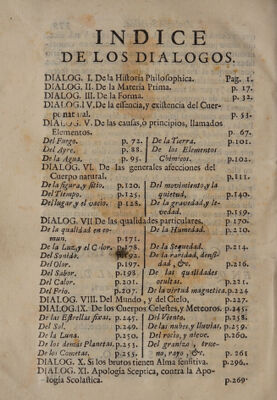 INDICE
DE LOS DIALOGOS.
DIALOG. I. De la Historia Philosophica. Pag. 1.
DIALOG. II. De la Materia Prima. p. 17.
DIALOG. III. De la Forma. p. 32.
DIALOG. IV. De la essencia, y existencia del Cuer-
po natural. p. 53.
DIALOG. V. De las causas, ò principios, llamados
Elementos. p. 67.
Del Fuego. p. 72. De la Tierra. p. 101.
Del Ayre. p. 88. De los Elementos
De la Agua. p. 95. Chimicos. p. 102.
DIALOG. VI. De las generales afecciones del
Cuerpo natural. p. 111.
De la figura, y sitio. p. 120. Del movimiento, y la
Del Tiempo. p. 125. quietud. p. 140.
Del lugar, y el vacio. p. 128. De la gravedad, y le-
vedad. p. 159.
DIALOG. VII De las qualidades particulares. p. 170.
De la qualidad en co- De la Humedad. p. 210.
mun. p. 171.
De la Luz, y el Color. p. 178. De la Sequedad. p. 214.
Del Sonido. p. 192. De la raridad, densi-
Del Olor. p. 197. dad, &c. p. 216.
Del Sabor. p. 198. De las qualidades
Del Calor. p. 201. ocultas. p. 221.
Del Frio. p. 207. De la virtud magnetica p. 224.
DIALOG. VIII. Del Mundo, y del Cielo. p. 227.
DIALOG. IX. De los Cuerpos Celestes, y Meteoros. p. 245.
De las Estrellas fixas. p. 245. Del Viento. p. 258.
Del Sol. p. 249. De las nubes, y lluvias. p. 259.
De la Luna. p. 250. Del rocio, y nieve. p. 260.
De los demàs Planetas. p. 253. Del granizo, true-
De los Cometas. p. 255. no, rayo, &c. p. 261
DIALOG. X. Si los brutos tienen Alma sensitiva. p. 296.
DIALOG. XI. Apologia Sceptica, contra la Apo-
logia Scolastica. p. 269.